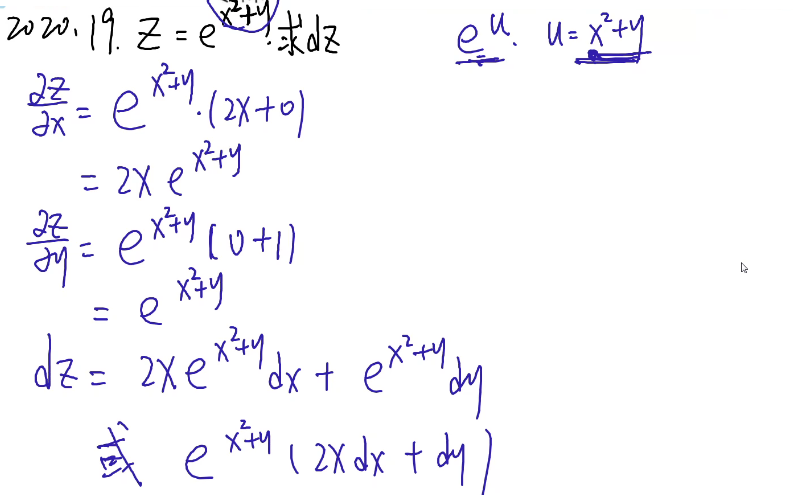 2020.19. Z = e^{x²+y}. 求dz
e^u. u = x²+y
∂z/∂x = e^{x²+y}·(2x+0)
= 2x e^{x²+y}
∂z/∂y = e^{x²+y}(0+1)
= e^{x²+y}
dz = 2xe^{x²+y}dx + e^{x²+y}dy
或 e^{x²+y}(2xdx + dy)